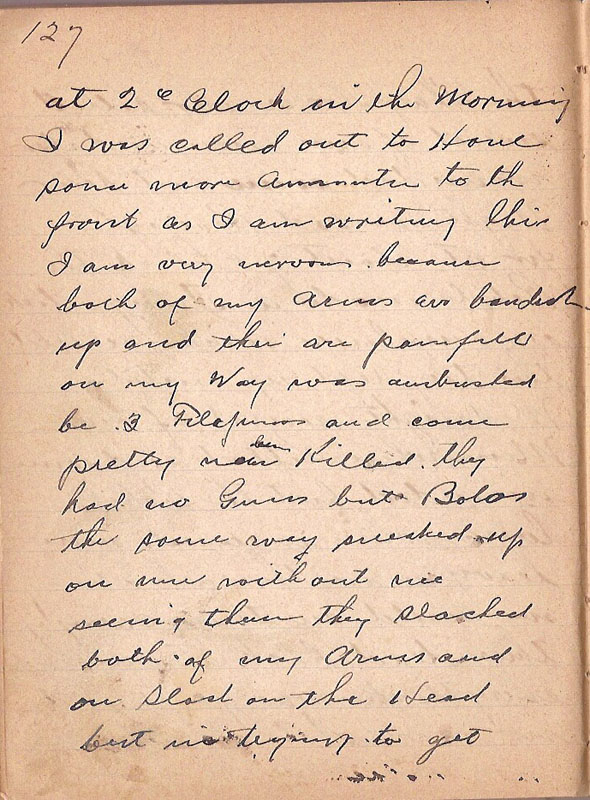 127
at 2 o Clock in the Morning
I was called out to Haul
some more Ammuntn to th
front as I am writing this
I am very nervous because
both of my Arms are bandish
up and their are painfull
on my Way was ambushed
be 3 Filipinos and come
pretty near been Killed. they
had no Guns but Bolos
the some way sneaked up
on me without me
seeing them they slached
both of my Arms and
on Slash on the Head
but in trying to get